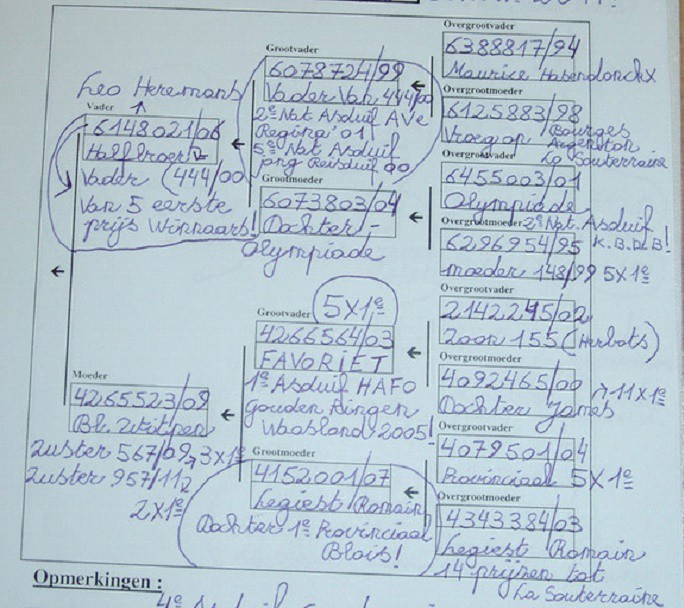 Leo Heremans
Vader
6148021/06
Halfbroer
Vader (444/00
Van 5 eerste
prijs Winnaars!
Grootvader
6078724/99
Vader Van 444/00
2e Nat Asduif Ave
Regina '01
5e Nat Asduif
png Reisduif 00
Grootmoeder
6073803/04
Dochter -
Olympiade
Overgrootvader
6388817/94
Maurice Hasendonckx
Overgrootmoeder
6125883/98
Vroeg op Bourges
Argenton
La Souterraine
Overgrootvader
6455003/01
Olympiade
Overgrootmoeder 2e Nat. Asduif
6296954/95 K.B.D.B!
moeder 148/99 5X1e
Moeder
4265523/09
Bl. Witpen
Zuster 567/09 → 3x1e
Zuster 957/11
2x1e
5X1e
Grootvader
4266564/03
FAVORIET
1e Asduif HAFO
gouden Ringen
Waasland 2005!
Grootmoeder
4152001/07
Legiest Romain
Dochter 1e Provinciaal
Blois!
Overgrootvader
2142245/02
Zoon 155 (Herbots)
Overgrootmoeder
4092465/00 → 11x1e
Dochter James
Overgrootvader
4079501/04
Provinciaal 5X1e
Overgrootmoeder
4343384/03
Legiest Romain
14 prijzen tot
La Souterraine
Opmerkingen :